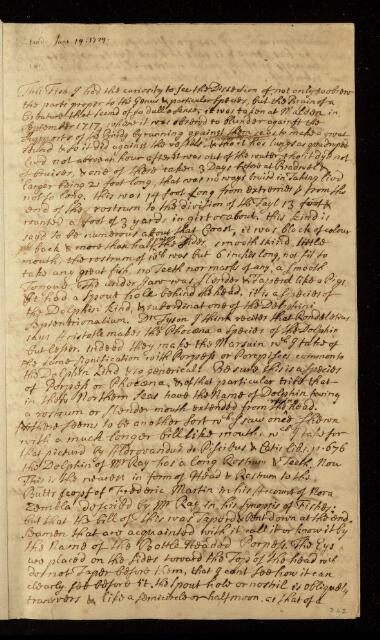 read. June 19: 1729.
This Fish I had the curiosity to see the Dissection of not only to observe
the parts proper to the Genus & particular Species, but the Brain of a
Creature that seemd of so dull a sense, it was taken at Maldon in
September 1717 where it was observd to blunder against the
supporters of the Bridg by runing against them so as to make a great
sound & so it did against the vessells & tho it has lungs as quadruped
livd not above an hour after it was out of the water, tho it dyd not
bruised, & one of these taken 3 Days before at Bradwell
larger being 21 foot long, that was no ways bruisd in taking livd
not so long, this was 14 foot long from extremities & from the
end of the rostrum to the division of the Tayl 13 foot &
rounded a foot of 3 yards in girt or about, this kind is
sayd to be numerous about that Coast, it was black of colour
back & more than half the sides, smooth skind, little
mouth, the rostrum of wch was but 6 inches long, not fit to
take any great fish, no teeth nor marks of any, a smooth
Tongue. The under Jaw was slender & covered like a Pigs.
It had a spout hole behind the head, it is a species of
the Dolphin kind & subordinate one of the Delphinus
Septentrionalium. Dr Tyson I think recites that Rondeletius
says Aristotle makes the Phocæna a Species of the Dolphin
but lesser. Indeed they make the Marsuin wch I take of
same signification with Porpess or Porcpisces common to
the Dolphin kind & so generical. Be sure this is a Species
of Porpess or Phocæna, & of that particular tribe that
in these Northern Seas have the name of Dolphin having
a rostrum or slender mouth extended from the head.
further seems to be another sort wch I saw once shewn
with a much longer bill like mouth wch I take for
that pictured by Aldrovandus de Piscibus & Cetis Lib. p. 676
the Dolphin of Mr Ray has a long Rostrum & Teeth. Now
This is the nearest in form of Head & Rostrum to the
Butts kopf of Frederic Martin in his Account of Nova
Zembla described by Mr Ray in his Synopsis of Fishes;
but that the bill of this was taperd & bent down at the end.
Seamen that are acquainted with it call it or know it by
the Name of the Bottle Headed Porpess. The Eys
are placed on the sides toward the Top of the head wch
dos not Taper before them, that I cant see how it can
clearly see before it. the spout hole or nostril is obliquely
transvers & like a semicircle or half moon, as that of a
242